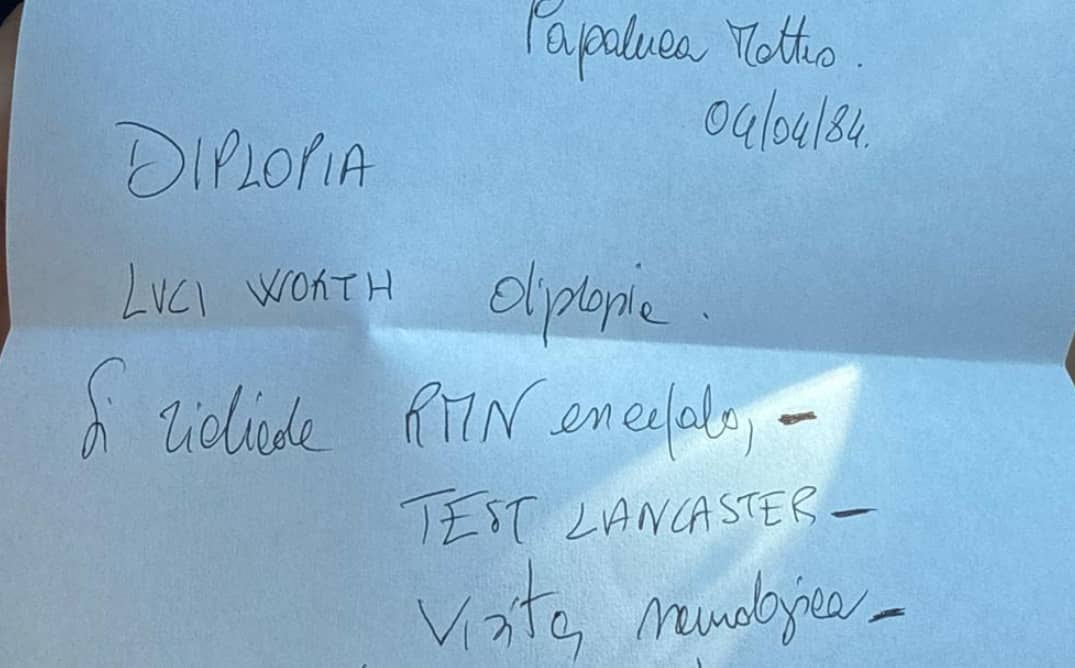 Papaluca Matteo.
04/04/84.
DIPLOPIA
LUCI WORTH diplopia.
Si richiede RMN encefalo, -
TEST LANCASTER -
Visita neurologica -